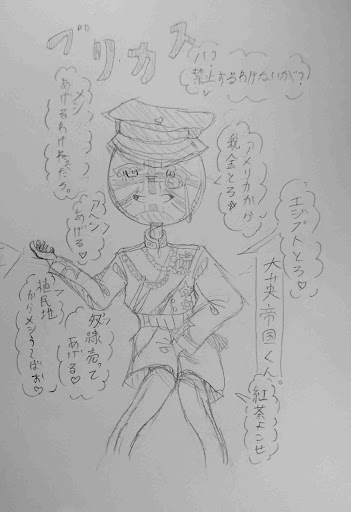 ブリカス
ハ?
禁止するわけないが?
メシ
あげるわけねぇだろ。
アメリカから
税金とろ
エジプトとろ♡
アヘン
あげる♡
大英帝国くん。
植民地
からメシうばお♡
奴隷売って
あげる♡
紅茶よこせ